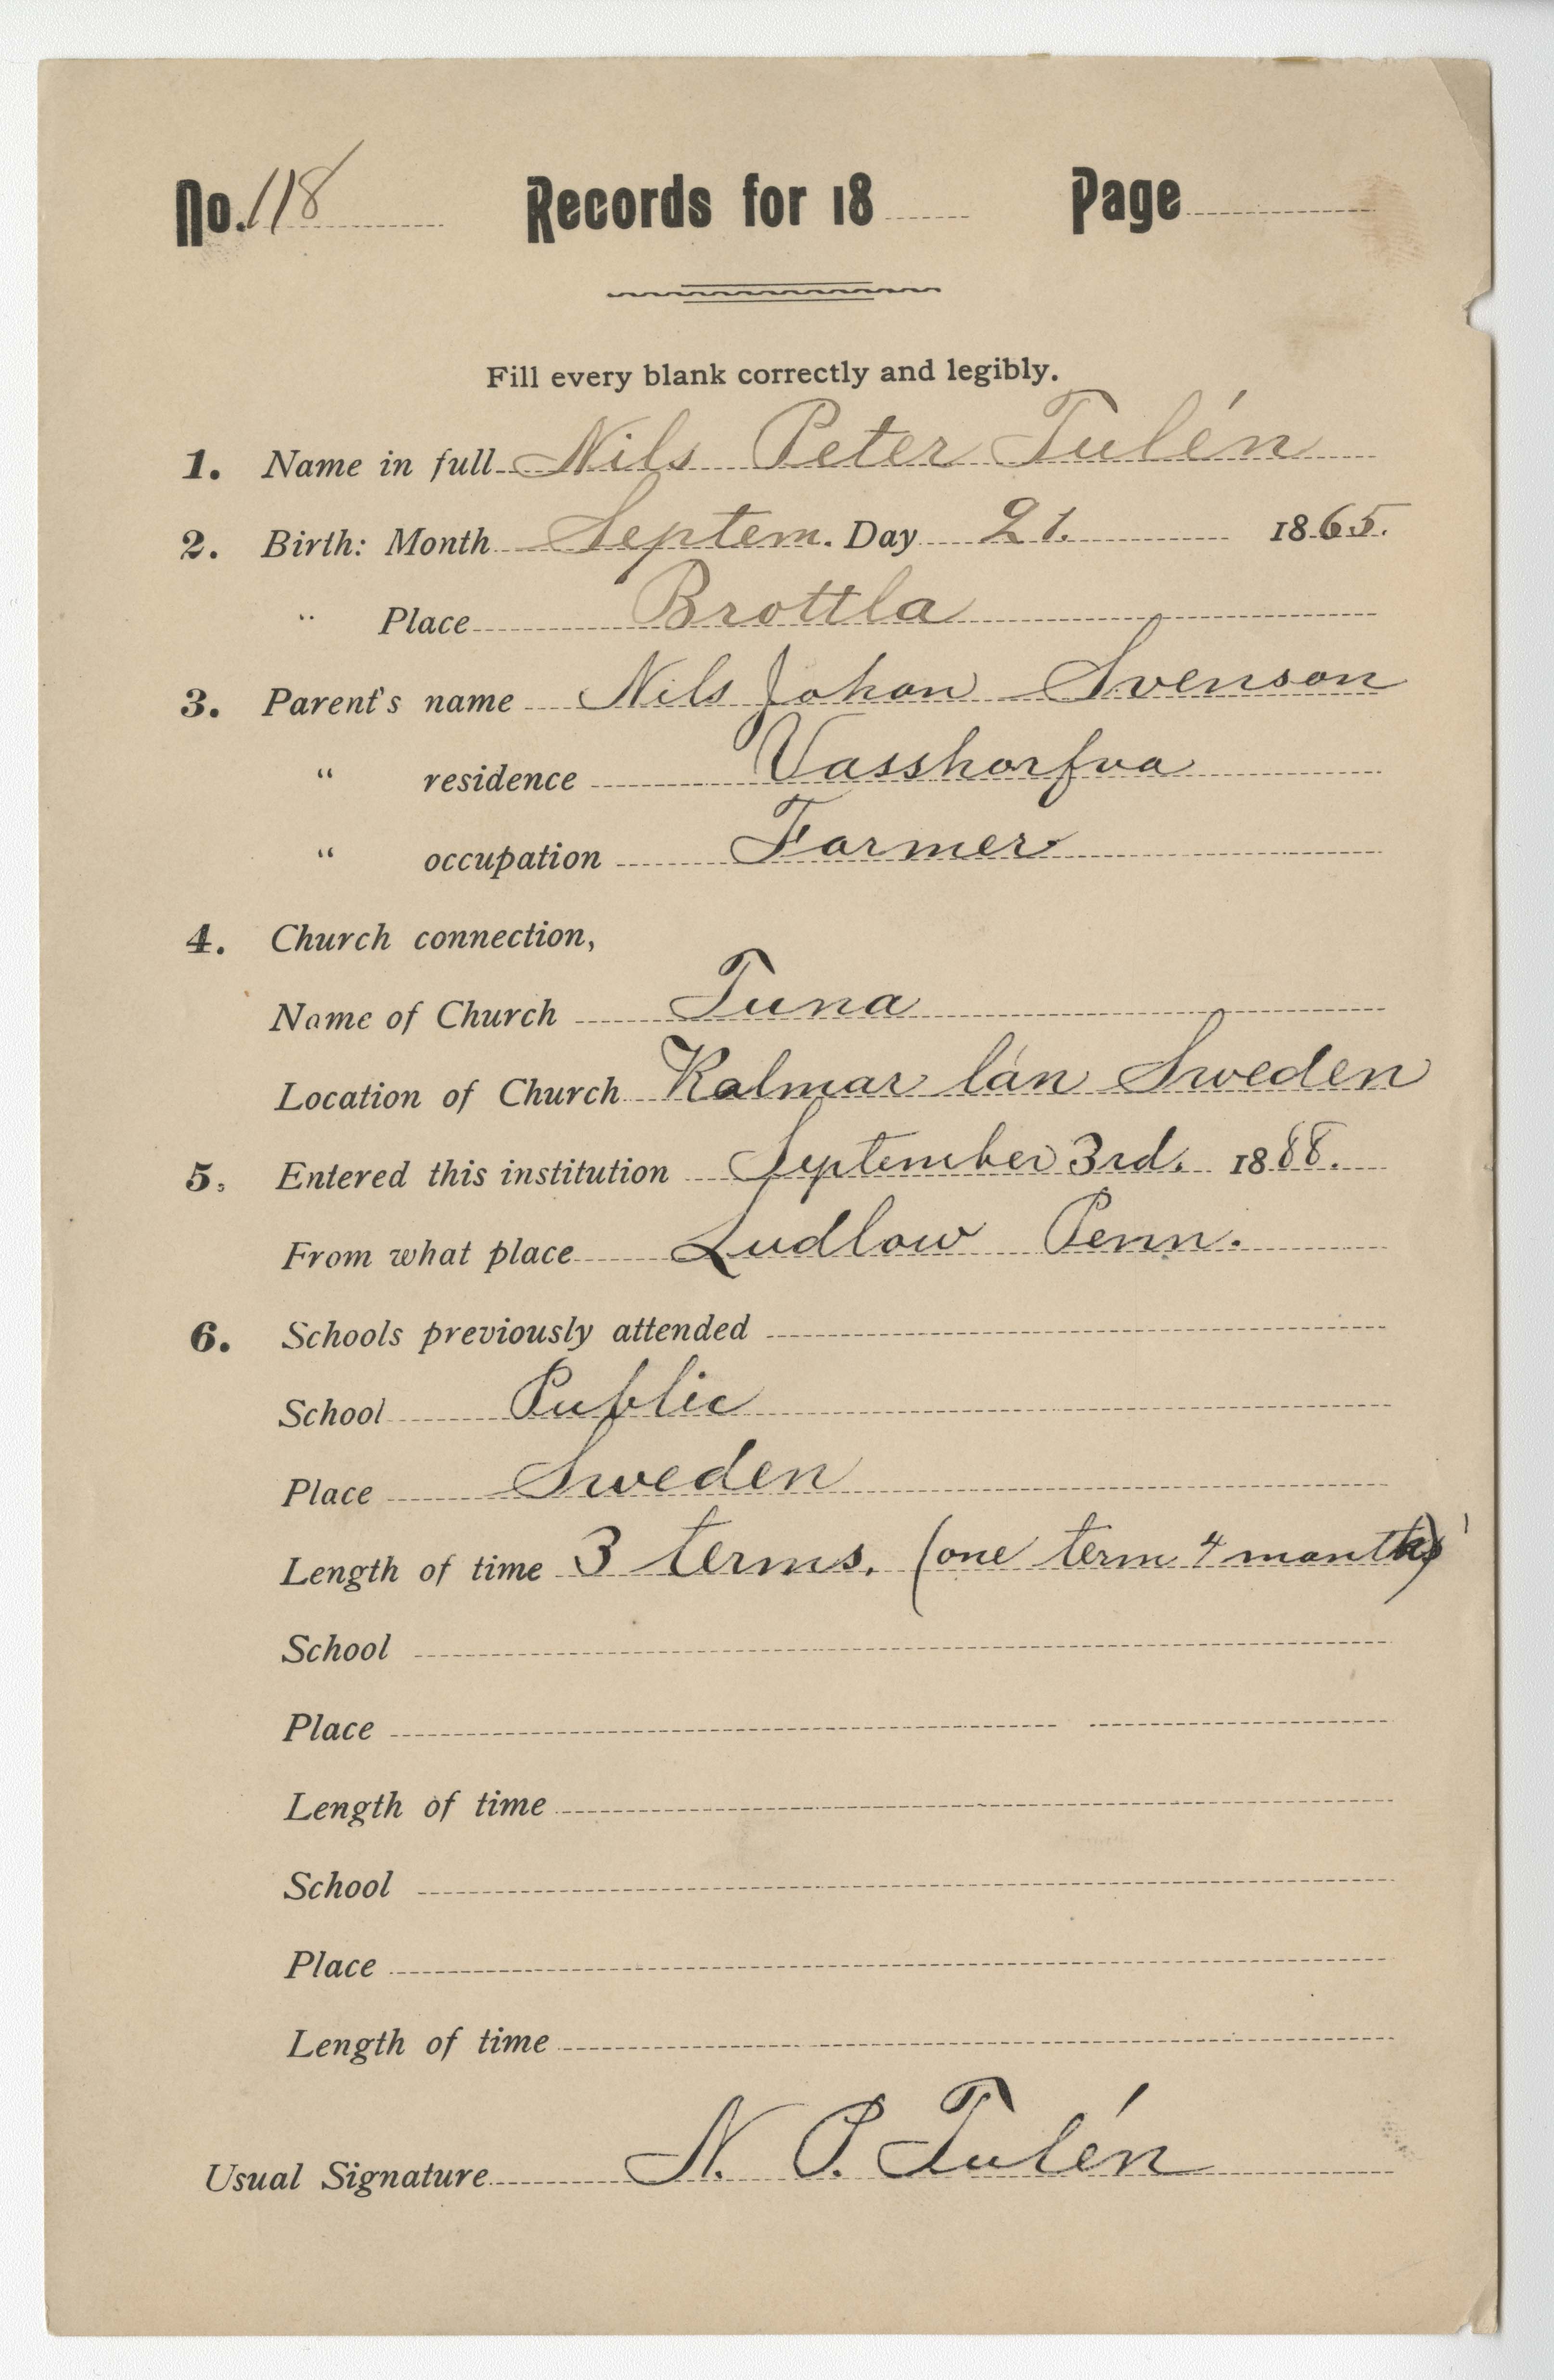 No. 118 Records for 18 Page
Fill every blank correctly and legibly.
1. Name in full Nils Peter Tulén
2. Birth: Month Septem. Day 21. 1865.
" Place Brottla
3. Parent's name Nils Johan Svenson
" residence Vasshorfva
" occupation Farmer
4. Church connection,
Name of Church Tuna
Location of Church Kalmar län Sweden
5. Entered this institution September 3rd. 1888.
From what place Ludlow Penn.
6. Schools previously attended
School Public
Place Sweden
Length of time 3 terms. (one term 4 months)
School
Place
Length of time
School
Place
Length of time
Usual Signature N. P. Tulén